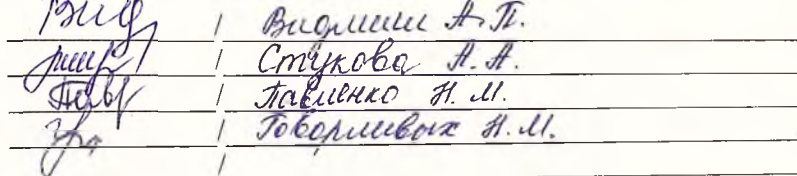 / Видмиш А.П.
/ Стукова А.А.
/ Павленко Н.М.
/ Говорливых Н.М.
/